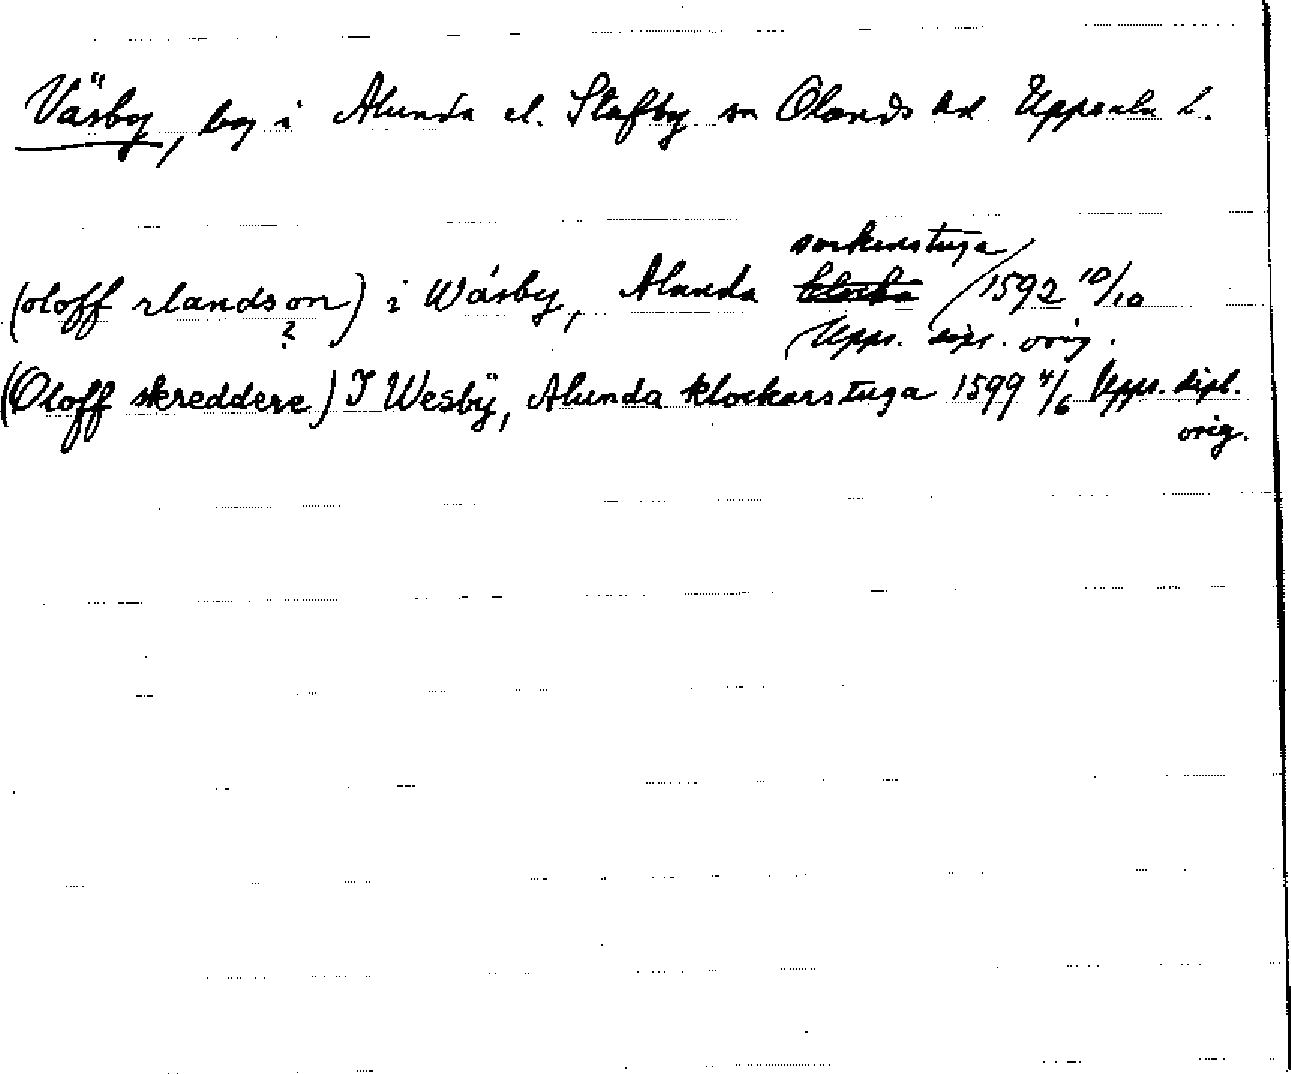 Väsby, by i Alunda el. Stafby sn Olands hd Uppsala l.
sockenstuga
(oloff rlandson) i Wásby, Alunda klocka / 1592 10/10
?
Upps. dipl. orig.
(Oloff skreddere) I Wesbÿ, Alunda klockarstuga 1599 4/6 Upps. dipl.
orig.